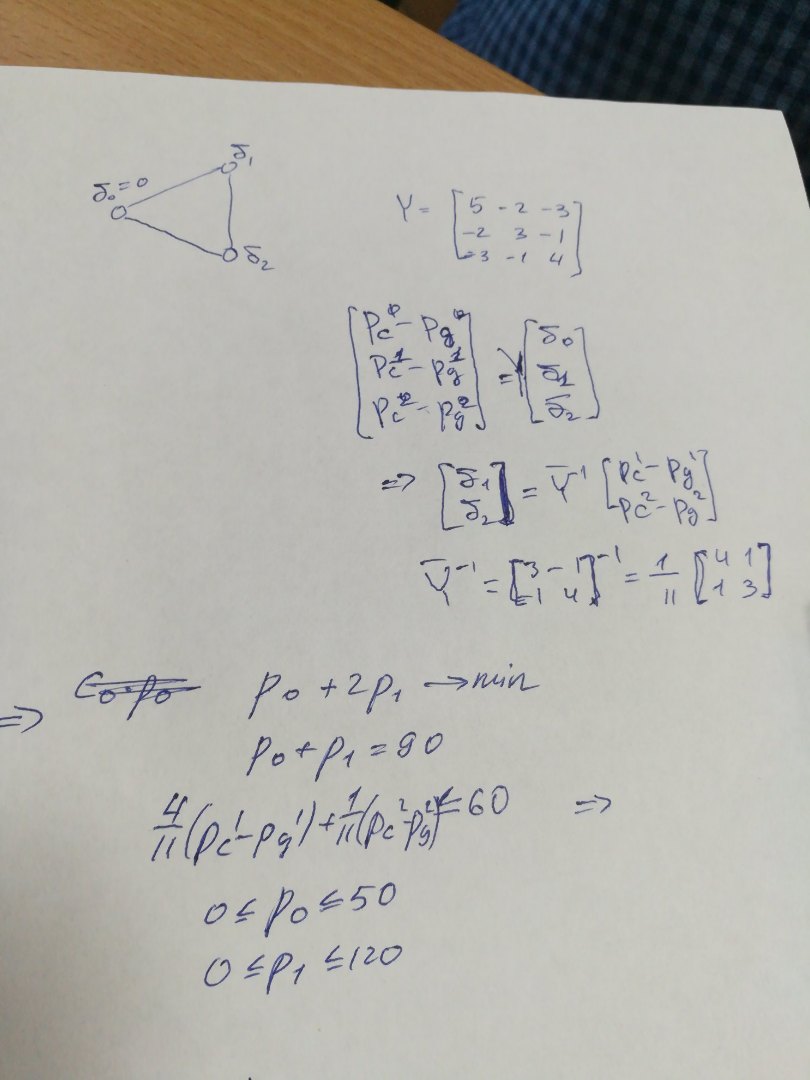 δ₀ = 0
δ₁
δ₂
Y = [ 5 -2 -3
-2 3 -1
-3 -1 4 ]
[ Pc⁰ - Pg⁰
Pc¹ - Pg¹
Pc² - Pg² ] = Y [ δ₀
δ₁
δ₂ ]
=> [ δ₁
δ₂ ] = Y̅⁻¹ [ Pc¹ - Pg¹
Pc² - Pg² ]
Y̅⁻¹ = [ 3 -1
-1 4 ]⁻¹ = 1/11 [ 4 1
1 3 ]
=> P₀ + 2P₁ → min
P₀ + P₁ = 90
4/11 (Pc¹ - Pg¹) + 1/11 (Pc² - Pg²) ≤ 60 =>
0 ≤ P₀ ≤ 50
0 ≤ P₁ ≤ 120